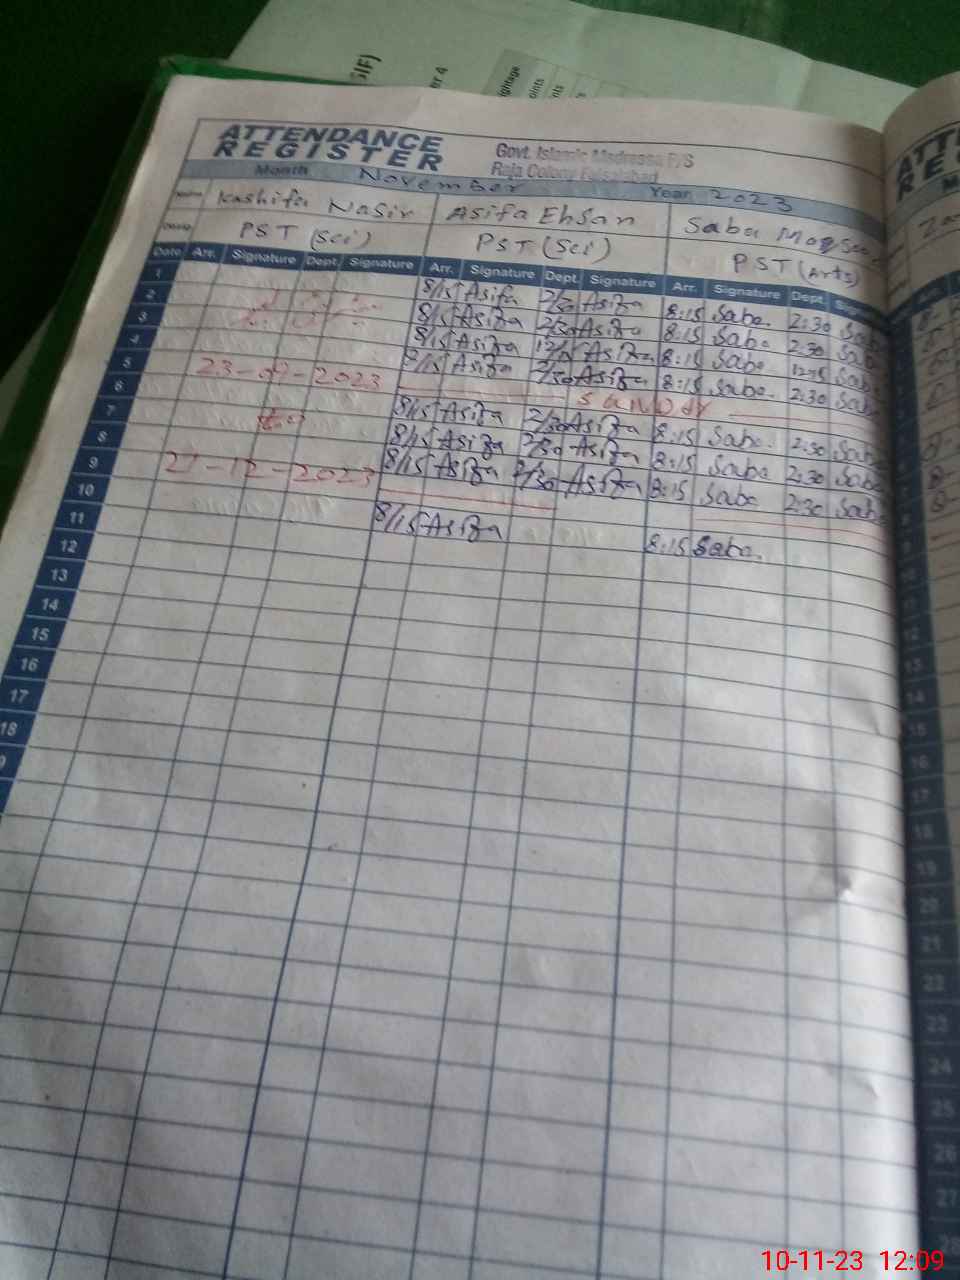 SIF)
er 4
ghtage
oints
nts
ATTENDANCE
REGISTER
Govt. Islamic Madressa P/S
Raja Colony Faisalabad
Month November Year 2023
Name Kashifa Nasir Asifa Ehsan Saba
PST (Sci) PST (Sci) PST (Arts)
Date Arr. Signature Dept. Signature Arr. Signature Dept. Signature Arr. Signature Dept.
1 8/15 Asifa 2/30 Asifa 8:15 Saba 2:30 Sab
2 8/15 Asifa 2/30 Asifa 8:15 Saba 2:30 Sab
3 8/15 Asifa 12/15 Asifa 8:15 Saba 12:15 Sab
4 23-09-2023 8/15 Asifa 2/30 Asifa 8:15 Saba 2:30 Sab
5 SUNDAY
6 to 8/15 Asifa 2/30 Asifa 8:15 Saba 2:30 Sab
7 8/15 Asifa 2/30 Asifa 8:15 Saba 2:30 Sab
8 21-12-2023 8/15 Asifa 2/30 Asifa 8:15 Saba 2:30 Sab
9
10 8/15 Asifa 8:15 Saba
11
12
13
14
15
16
17
18
9
12
13
14
15
16
17
18
19
20
21
22
23
24
25
26
27
10-11-23 12:09